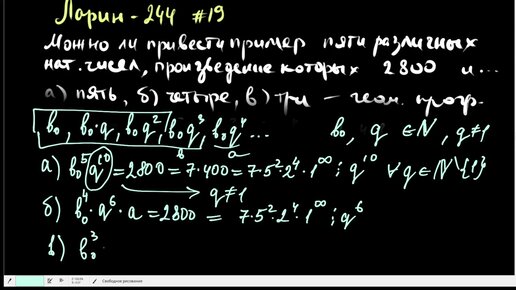 Ларин - 244 #19
Можно ли привести пример пяти различных
нат. чисел, произведение которых 2800 и ...
а) пять, б) четыре, в) три — геом. прогр.
b₀, b₀·q, b₀q², b₀q³, b₀q⁴ ... b₀, q ∈ N, q≠1
а) b₀⁵ q¹⁰ = 2800 = 7·400 = 7·5²·2⁴·1^∞ ⋮ q¹⁰ ∀q∈N\{1}
q≠1
б) b₀⁴·q⁶·a = 2800 = 7·5²·2⁴·1^∞ ⋮ q⁶
в) b₀³ ·
Свободное рисование